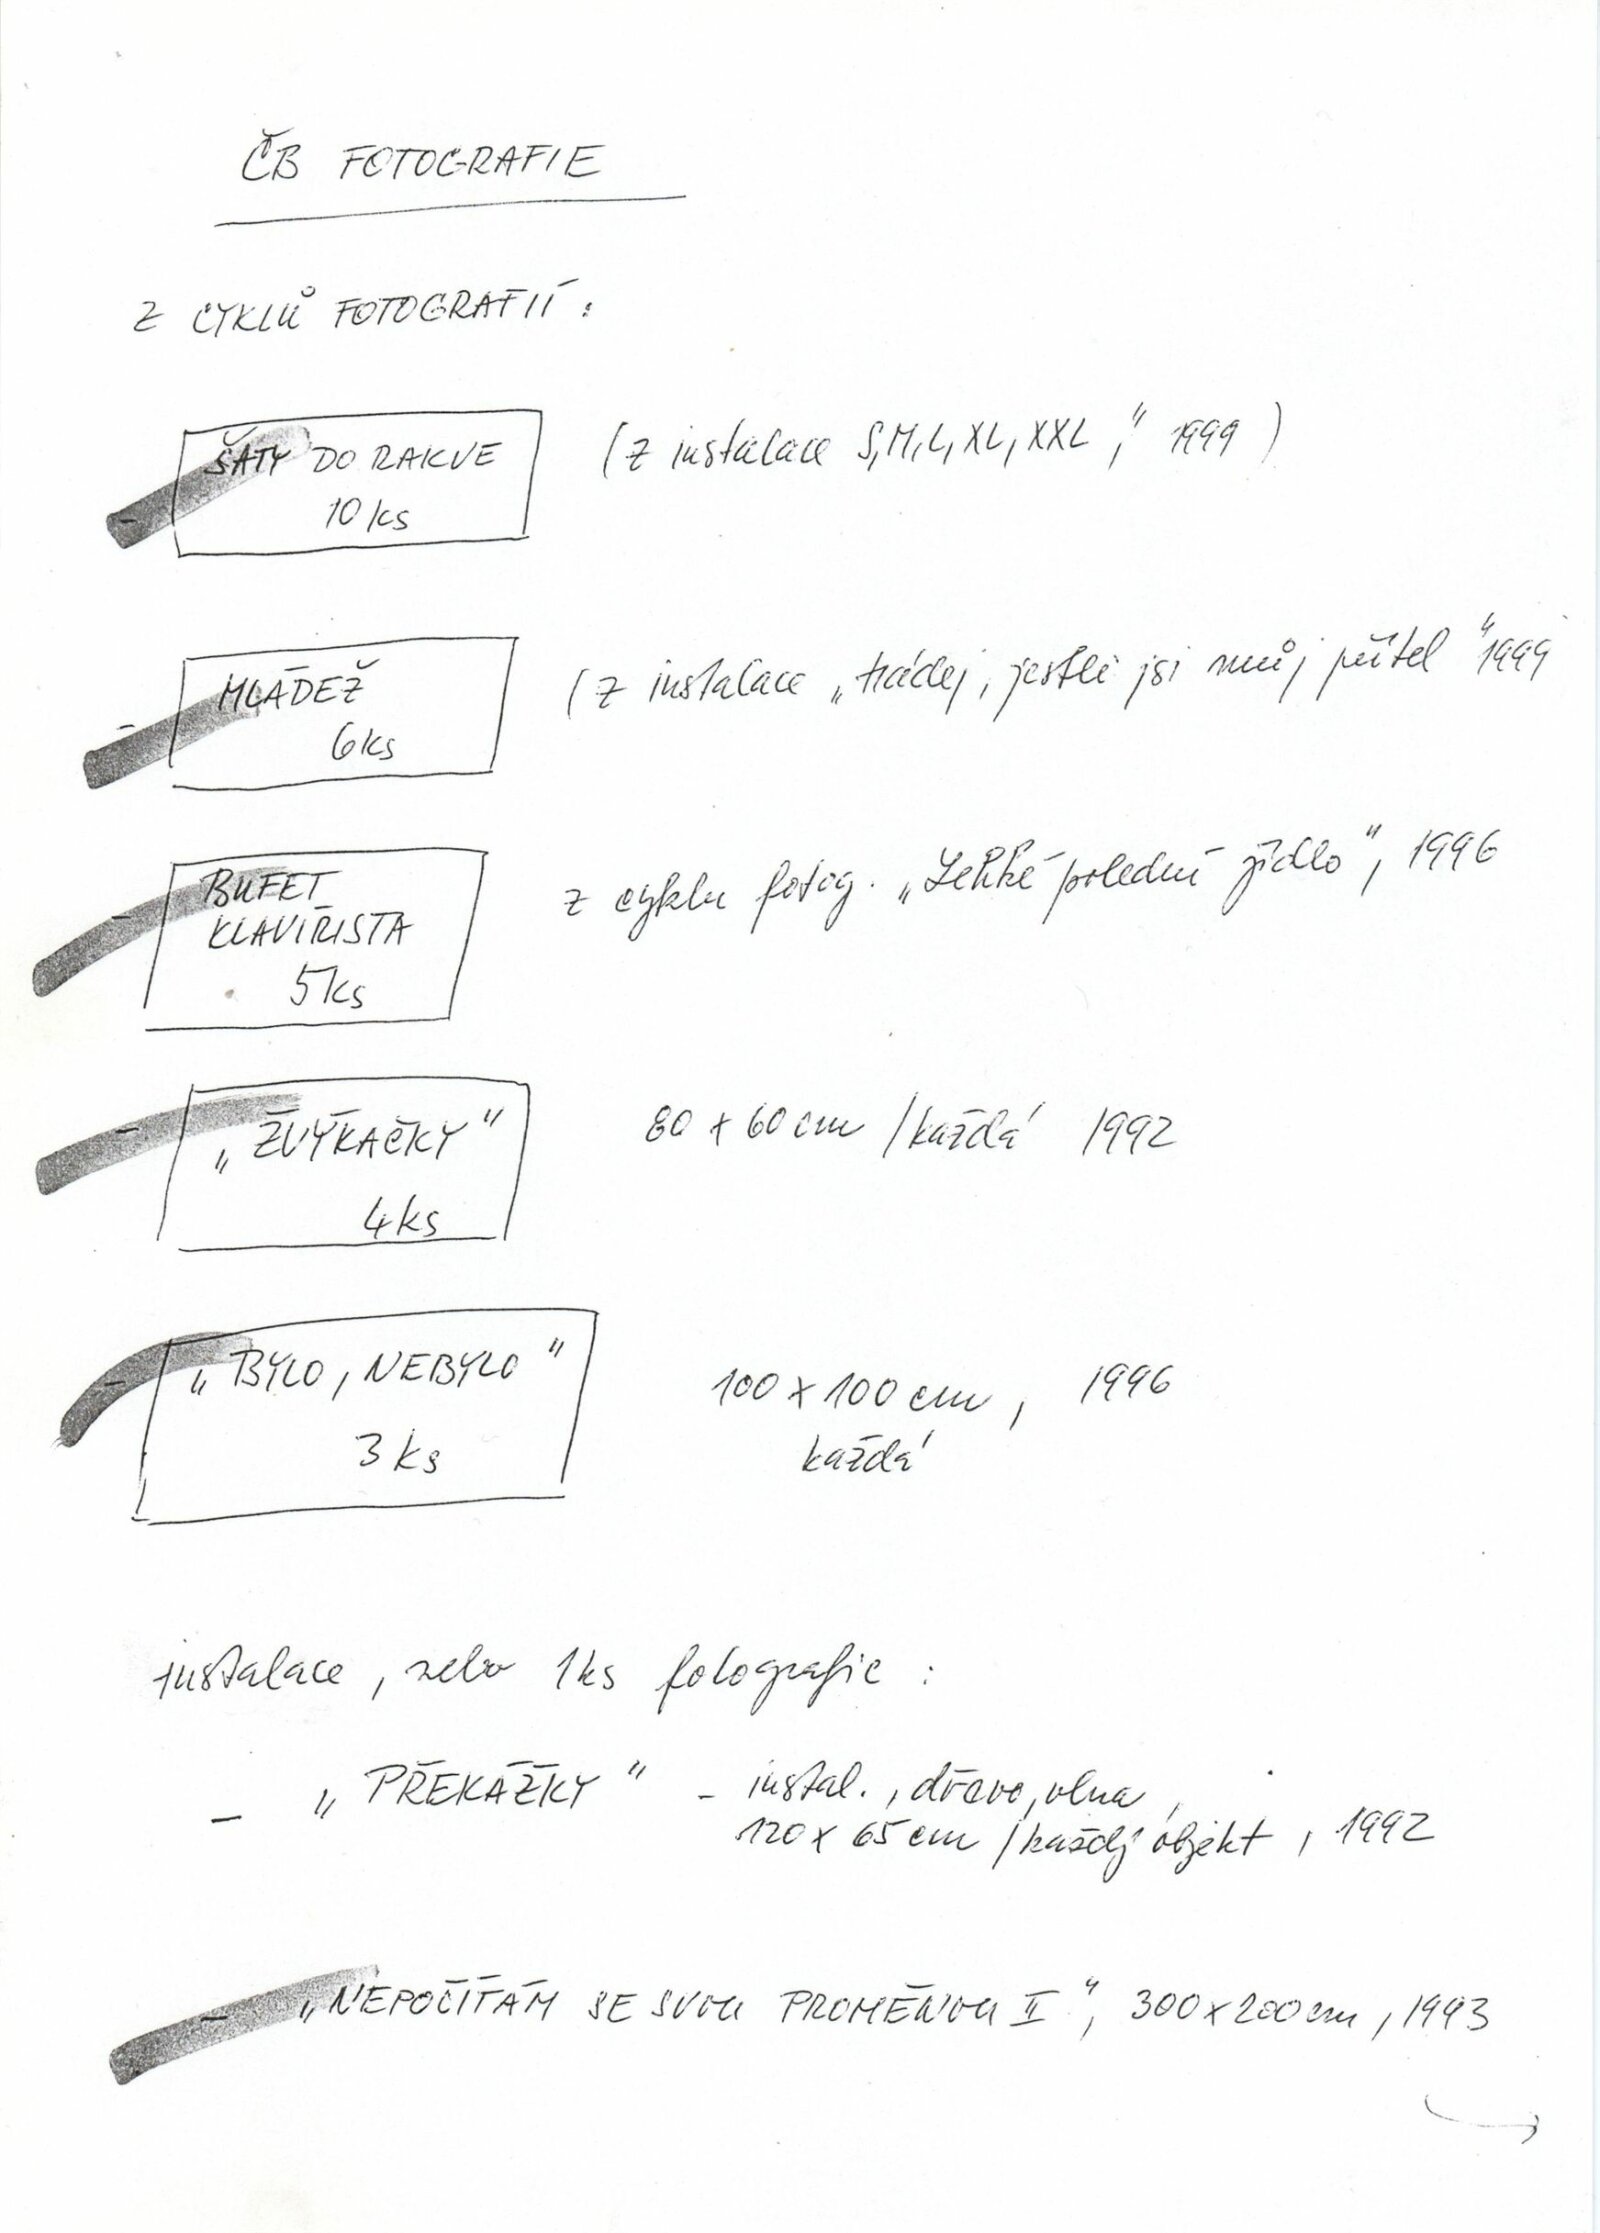 ČB FOTOGRAFIE
Z CYKLŮ FOTOGRAFIÍ :
- ŠATY DO RAKVE
10 ks
(z instalace S,M,L,XL,XXL," 1999 )
- MLÁDEŽ
6 ks
(z instalace „ jestli jsi můj přítel " 1999
- BUFET
KLAVÍRISTA
5 ks
z cyklu fotog. „Lehké polední jídlo", 1996
- „ŽVÝKAČKY"
4 ks
80 x 60 cm /každá 1992
- „BYLO, NEBYLO"
3 ks
100 x 100 cm , 1996
každá
instalace, nebo 1ks fotografie :
- „PŘEKÁŽKY" - instal., dřevo, vlna,
120 x 65 cm /každý objekt , 1992
- „NEPOČÍTÁM SE SVOU PROMĚNOU II", 300 x 200 cm, 1993